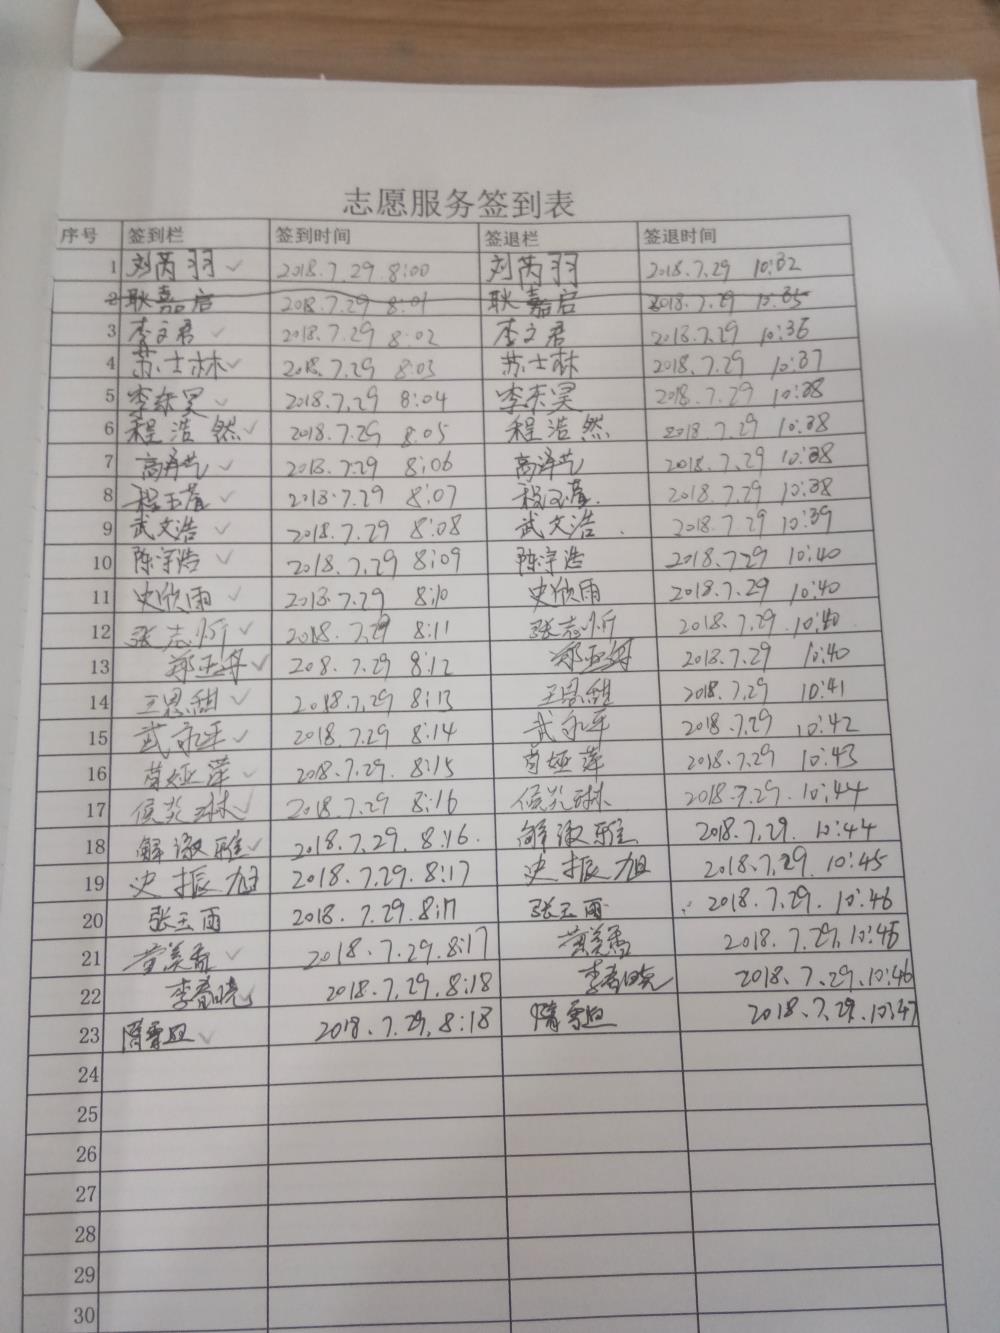 志愿服务签到表
序号 签到栏 签到时间 签退栏 签退时间
1 刘芮羽 ✓ 2018.7.29 8:00 刘芮羽 2018.7.29 10:32
2 耿嘉启 2018.7.29 8:01 耿嘉启 2018.7.29 10:35
3 李文君 ✓ 2018.7.29 8:02 李文君 2018.7.29 10:36
4 苏士林 ✓ 2018.7.29 8:03 苏士林 2018.7.29 10:37
5 李东昊 ✓ 2018.7.29 8:04 李东昊 2018.7.29 10:38
6 程浩然 ✓ 2018.7.29 8:05 程浩然 2018.7.29 10:38
7 高泽艺 ✓ 2018.7.29 8:06 高泽艺 2018.7.29 10:38
8 程玉 ✓ 2018.7.29 8:07 程玉 2018.7.29 10:38
9 武文浩 ✓ 2018.7.29 8:08 武文浩 2018.7.29 10:39
10 陈宇浩 ✓ 2018.7.29 8:09 陈宇浩 2018.7.29 10:40
11 史欣雨 ✓ 2018.7.29 8:10 史欣雨 2018.7.29 10:40
12 张志忻 ✓ 2018.7.29 8:11 张志忻 2018.7.29 10:40
13 郑亚丹 ✓ 208.7.29 8:12 郑亚丹 2018.7.29 10:40
14 王思甜 ✓ 2018.7.29 8:13 王思甜 2018.7.29 10:41
15 武永平 ✓ 2018.7.29 8:14 武永平 2018.7.29 10:42
16 苗娅萍 ✓ 2018.7.29. 8:15 苗娅萍 2018.7.29 10:43
17 侯炎琳 ✓ 2018.7.29 8:16 侯炎琳 2018.7.29. 10:44
18 解淑雅 ✓ 2018.7.29. 8:16. 解淑雅 2018.7.29. 10:44
19 史振旭 2018.7.29. 8:17 史振旭 2018.7.29. 10:45
20 张玉雨 2018.7.29. 8:17 张玉雨 2018.7.29. 10:46
21 董美香 ✓ 2018.7.29. 8:17 董美香 2018.7.29. 10:46
22 李春晓 ✓ 2018.7.29. 8:18 李春晓 2018.7.29. 10:46
23 隋雪 ✓ 2018.7.29. 8:18 隋雪 2018.7.29. 10:47
24
25
26
27
28
29
30